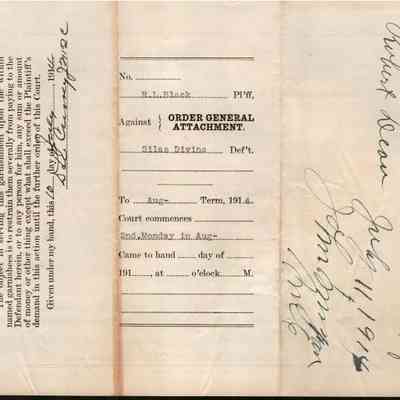 The object in serving this garnishment upon the within
named garnishees is to restrain them severally from paying to the
Defendant herein, or to any person for him, any sum or amount
of money or other thing except what shall exceed the Plaintiff's
demand in this action until the further order of this Court.
Given under my hand, this 10 day July 1914
No.
R.L.Black Pl'ff,
Against ORDER GENERAL
ATTACHMENT.
Silas Divine Def't.
To Aug- Term, 1914.
Court commences
2nd.Monday in Aug-
Came to hand day of
191 , at o'clock M.
Robert
July 11, 1914